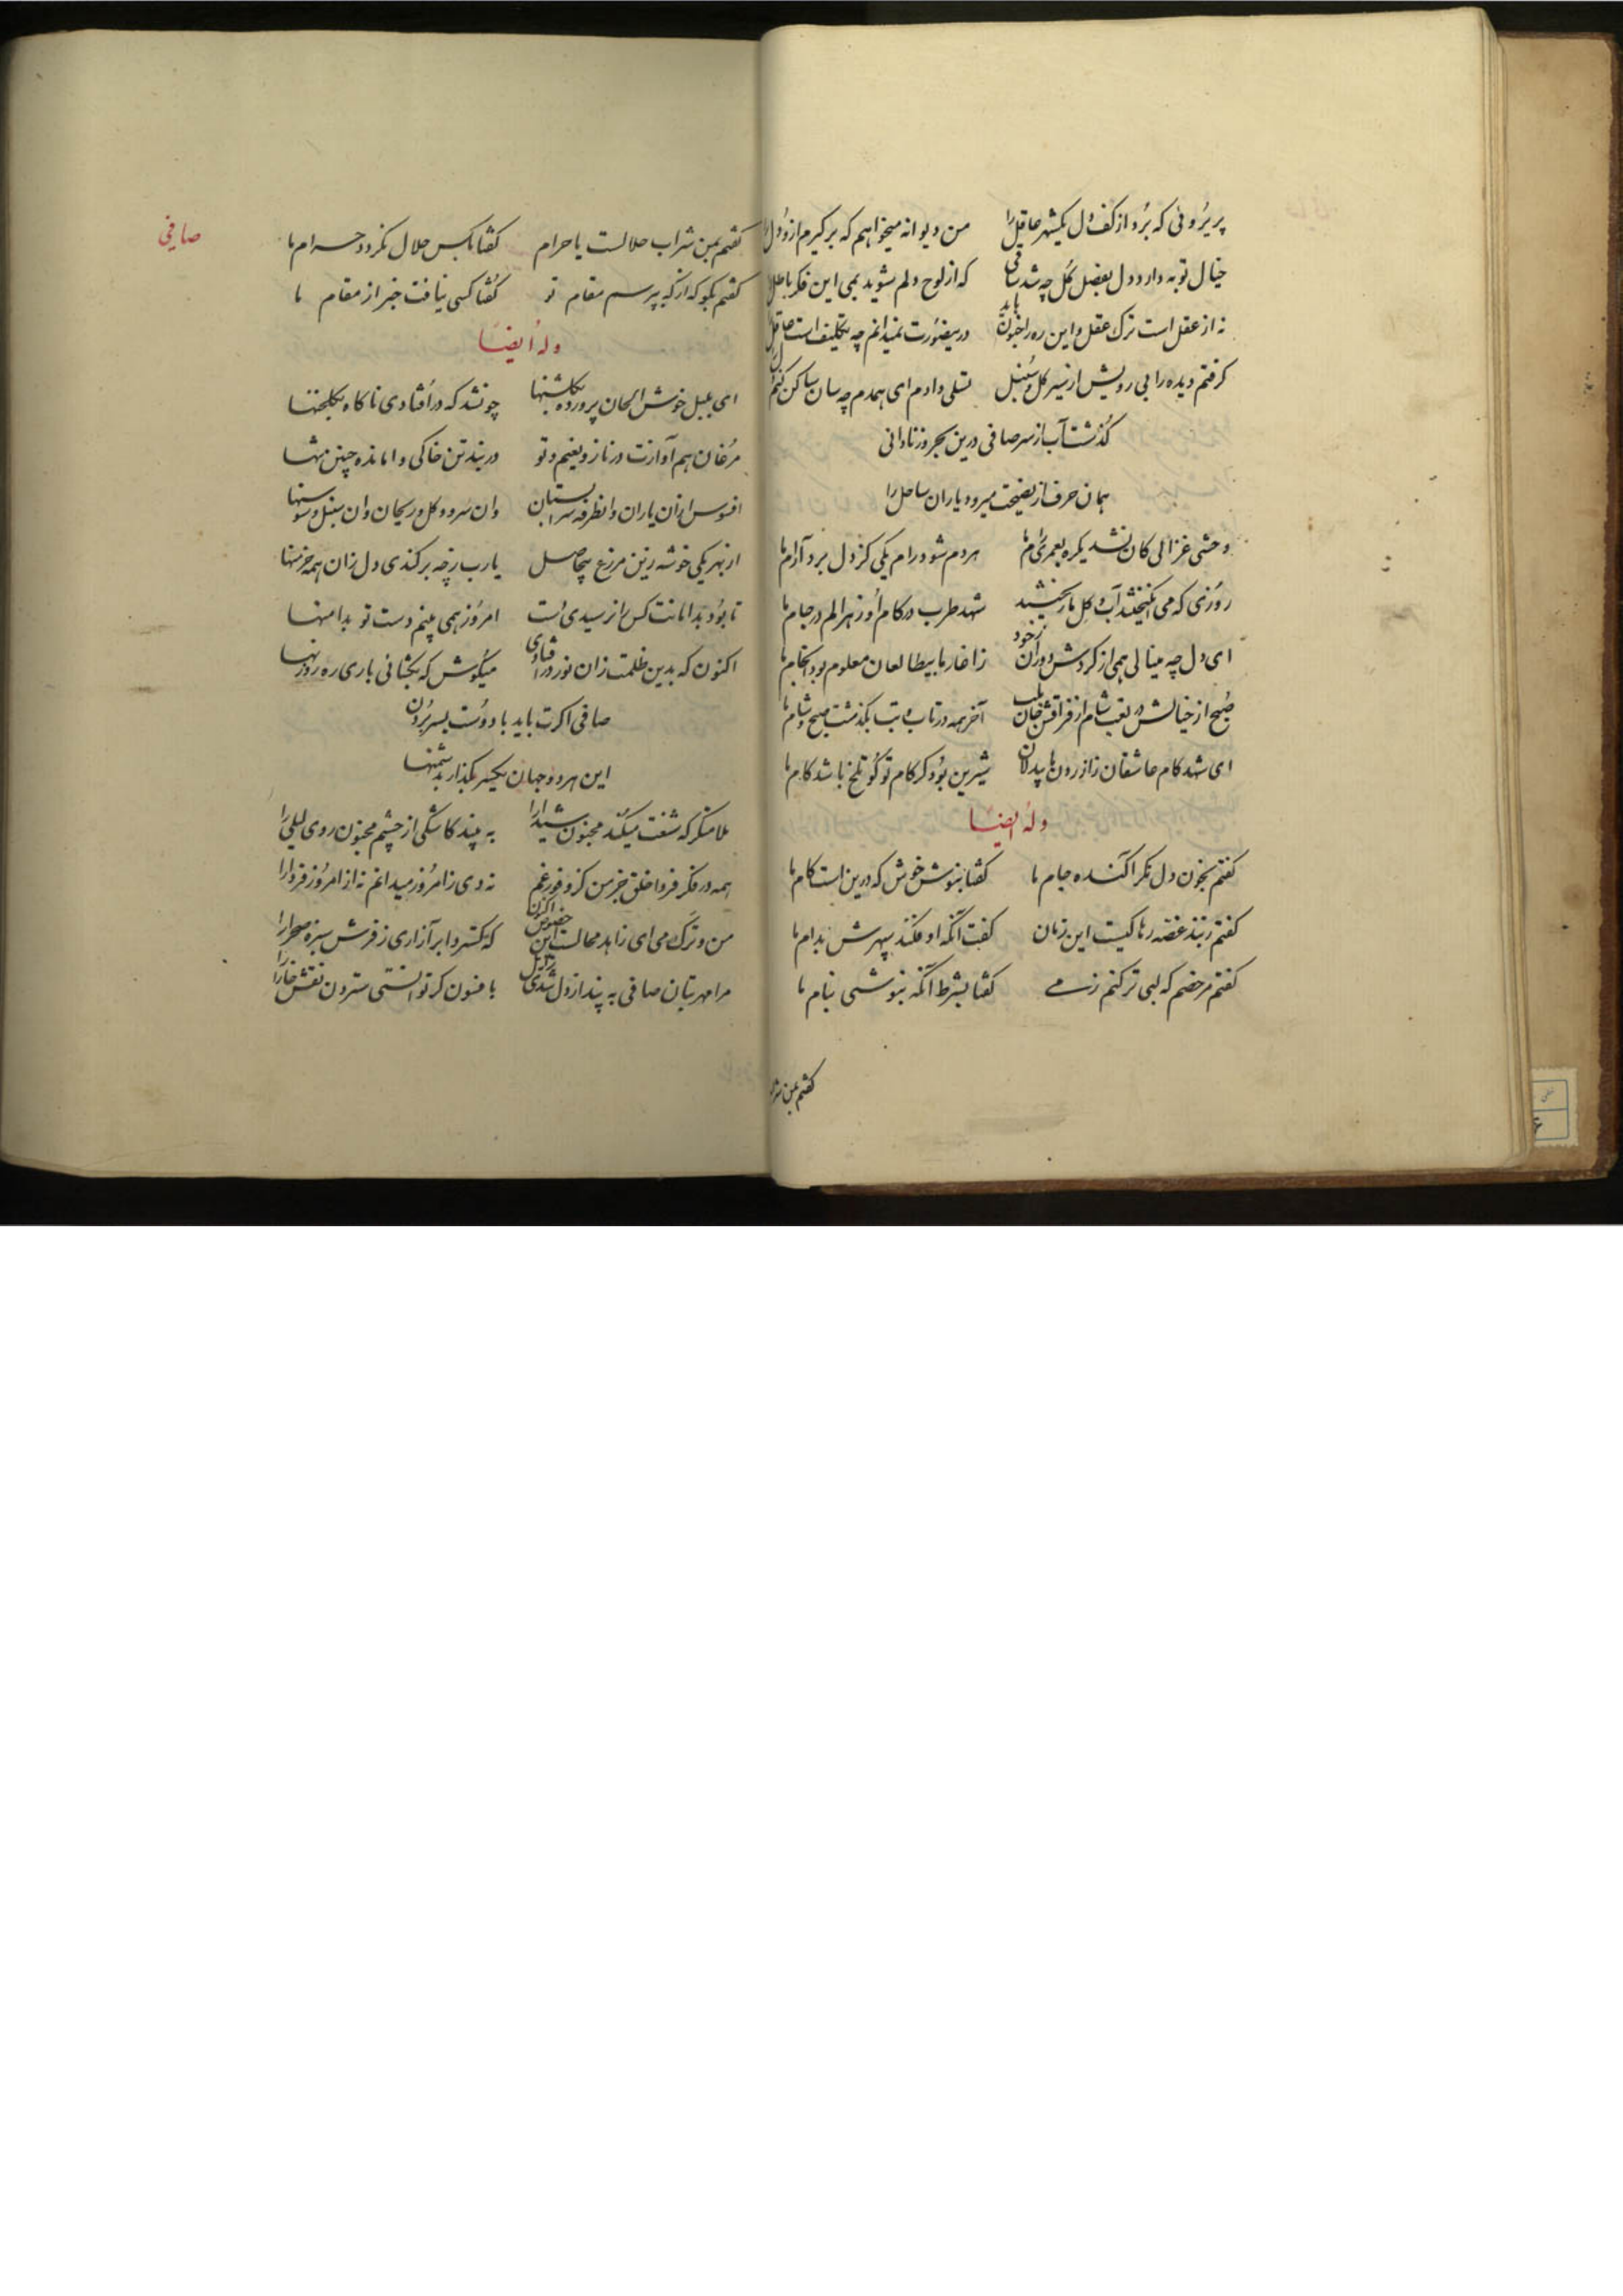 پریروئی که برد از کف دل یکشهر عاقل را من دیوانه میخواهم که برگیرم ازو دل را
خیال توبه دارد دل بفصل گل چه شد ساقی که از لوح دلم شوید بمی این فکر باطل را
نه از عقل است ترک عقل و این ره را جنون باید درینصورت نمیدانم چه تکلیف است عاقل را
گرفتم دیده را بی رویش از سیر گل و سنبل تسلی دادم ای همدم چه سان ساکن کنم دل را
گذشت آب از سر صافی درین بحر و ز نادانی
همان حرف از نصیحت میرود یاران ساحل را
وحشی غزالی کان نشد یکره بعمری رام ما هر دم شود رام یکی کز دل برد آرام ما
روزی که می انگیختند آب و گل ما ریختند شهد طرب در کام او زهر الم در جام ما
ای دل چه مینالی همی از گردش دوران خود ز اغاز ما بیطالعان معلوم بود انجام ما
صبح از خیالش در تعب شام از فراقش جان بلب آخر همه در تاب و تب بگذشت صبح و شام ما
ای شهد کام عاشقان زازردن ما بیدلان شیرین بود گر کام تو گو تلخ باشد کام ما
وله ایضا
گفتم بخون دل نگر آکنده جام ما گفتا بنوش خوش که درین است کام ما
گفتم ز بند غصه رها کیست این زمان گفت آنکه او فکند سپهرش بدام ما
گفتم مرخصم که لبی تر کنم ز می گفتا بشرط آنکه بنوشی بنام ما
گفتم بمن شر
صافی
گفتم بمن شراب حلالست یا حرام گفتا بکس حلال نگردد حرام ما
گفتم بگو که از که بپرسم مقام تو گفتا کسی نیافت خبر از مقام ما
وله ایضا
ای بلبل خوش الحان پرورده بگلشنها چونشد که در افتادی ناگاه بگلخنها
مرغان هم آوازت در ناز و نعیم و تو در بند تن خاکی وامانده چنین تنها
افسوس ازان یاران وانطرفه سرابستان وان سرو و گل و ریحان وان سنبل و سوسنها
از بهر یکی خوشه زین مزرع بیحاصل یارب ز چه برکندی دل زان همه خرمنها
تا بود بدامانت کس را نرسیدی دست امروز همی بینم دست تو بدامنها
اکنون که بدین ظلمت زان نور در افتادی میکوش که بگشائی باری ره روزنها
صافی اگرت باید با دوست بسر بردن
این هر دو جهان یکسر بگذار بدشمنها
ملامتگر که شنعت میکند مجنون شیدا را به بیند کاشکی از چشم مجنون روی لیلی را
همه در فکر فردا خلق جز من کز وفور غم نه دی زامروز میدانم نه از امروز فردا را
من و ترک می ای زاهد محالست این خصوص اکنون که گسترد ابر آزاری ز فرش سبزه صحرا را
مرا مهر بتان صافی به پند از دل شدی زایل بافسون گر توانستی ستردن نقش خارا را